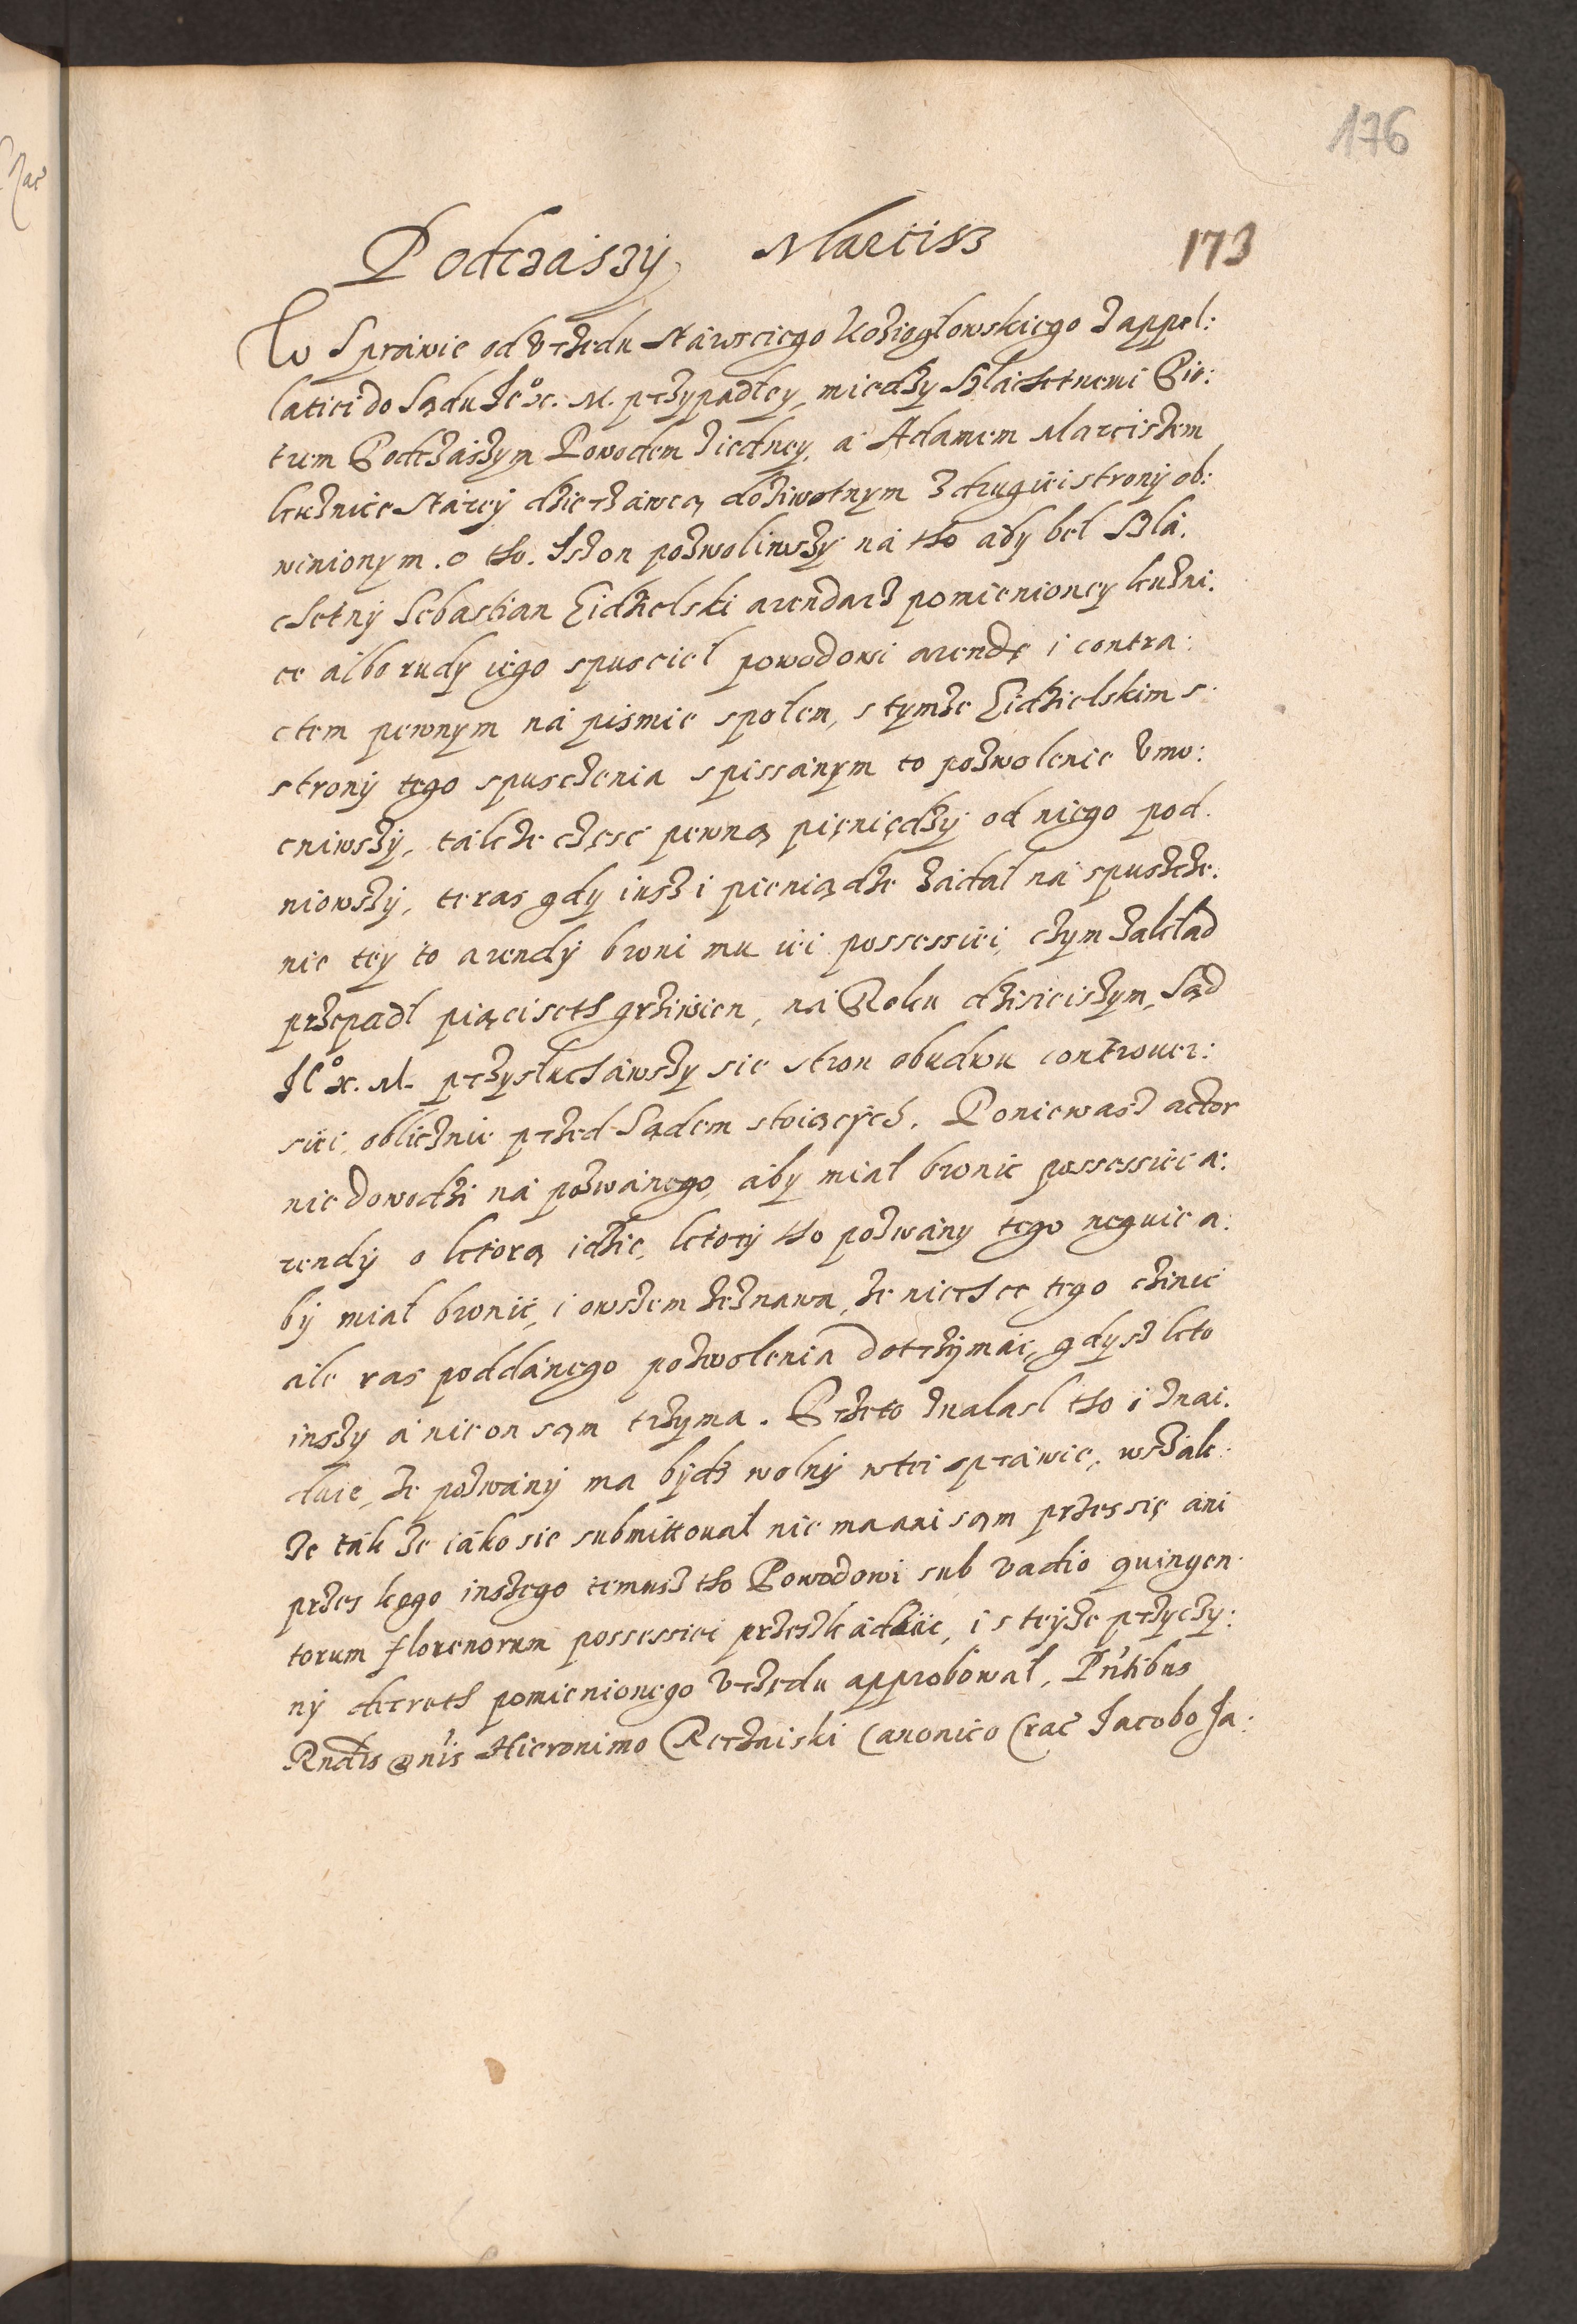 176
Podczaszÿ Marcisz 173
W Sprawie od Vrzedu Stawscięgo Koziogłowskiego z appel:
latiei do Sądu Je° x. M. przypadłey, miedzy Szlachetnemi Pio:
trem Podczaszym Powodem z iedney, a Adamem Marciszem
kuznice Starey dzierzawcą doziwotnym z drugiei stronÿ ob:
winionym. o tho. Isz on pozwoliwszÿ na tho abÿ bel Szla.
chetnÿ Sebastian Lidzielski arendarz pomienioney kuzni.
ce albo rudÿ iego spusciel powodowi arendę i contra:
ctem pewnym na pismie społem, s tymze Lidzielskim s
stronÿ tego spusczenia spissanym to pozwolenie vmo:
cniwszÿ, takze częsc pewną pięniędzÿ od niego pod.
niowszÿ, teras gdÿ insz i pieniądze zadal na spuszcze.
nie teÿ to arendÿ broni mu iei possessiei, czym zakład
przepadl pięciseth grziwien, na Roku dzisieiszym, Sąd
Je° x. M. przysłuchawszy sie stron obudwu controuer:
siei, oblicznie przed Sądem stoiącÿch. Poniewasz actor
nie dowodzi na pozwanego, aby miał bronic possessiei a:
rendÿ o ktorą idzie, ktorÿ tho pozwany tego neguie a:
bÿ miał bronić, i owszem zeznawa, ze niechce tego czinic
ale ras poddanego pozwolenia dotrzÿmac, gdysz kto
inszy a nie on sąm trzyma. Przeto znalasl tho i znai.
duie, ze pozwanÿ ma bÿdz wolnÿ w tei sprawie, wszak:
ze tak ze iako sie submittoual nie ma ani sąm przes się ani
przes kogo inszego temusz tho Powodowi sub vadio quingen
torum florenorum possessiei przeszkadzac, i s teÿze przyczy:
nÿ decreth pomienionego Vrzędu approbował, Pntibus
Rndis Dnis Hieronimo Rerzaiski Canonico Crac Jacobo Ja: